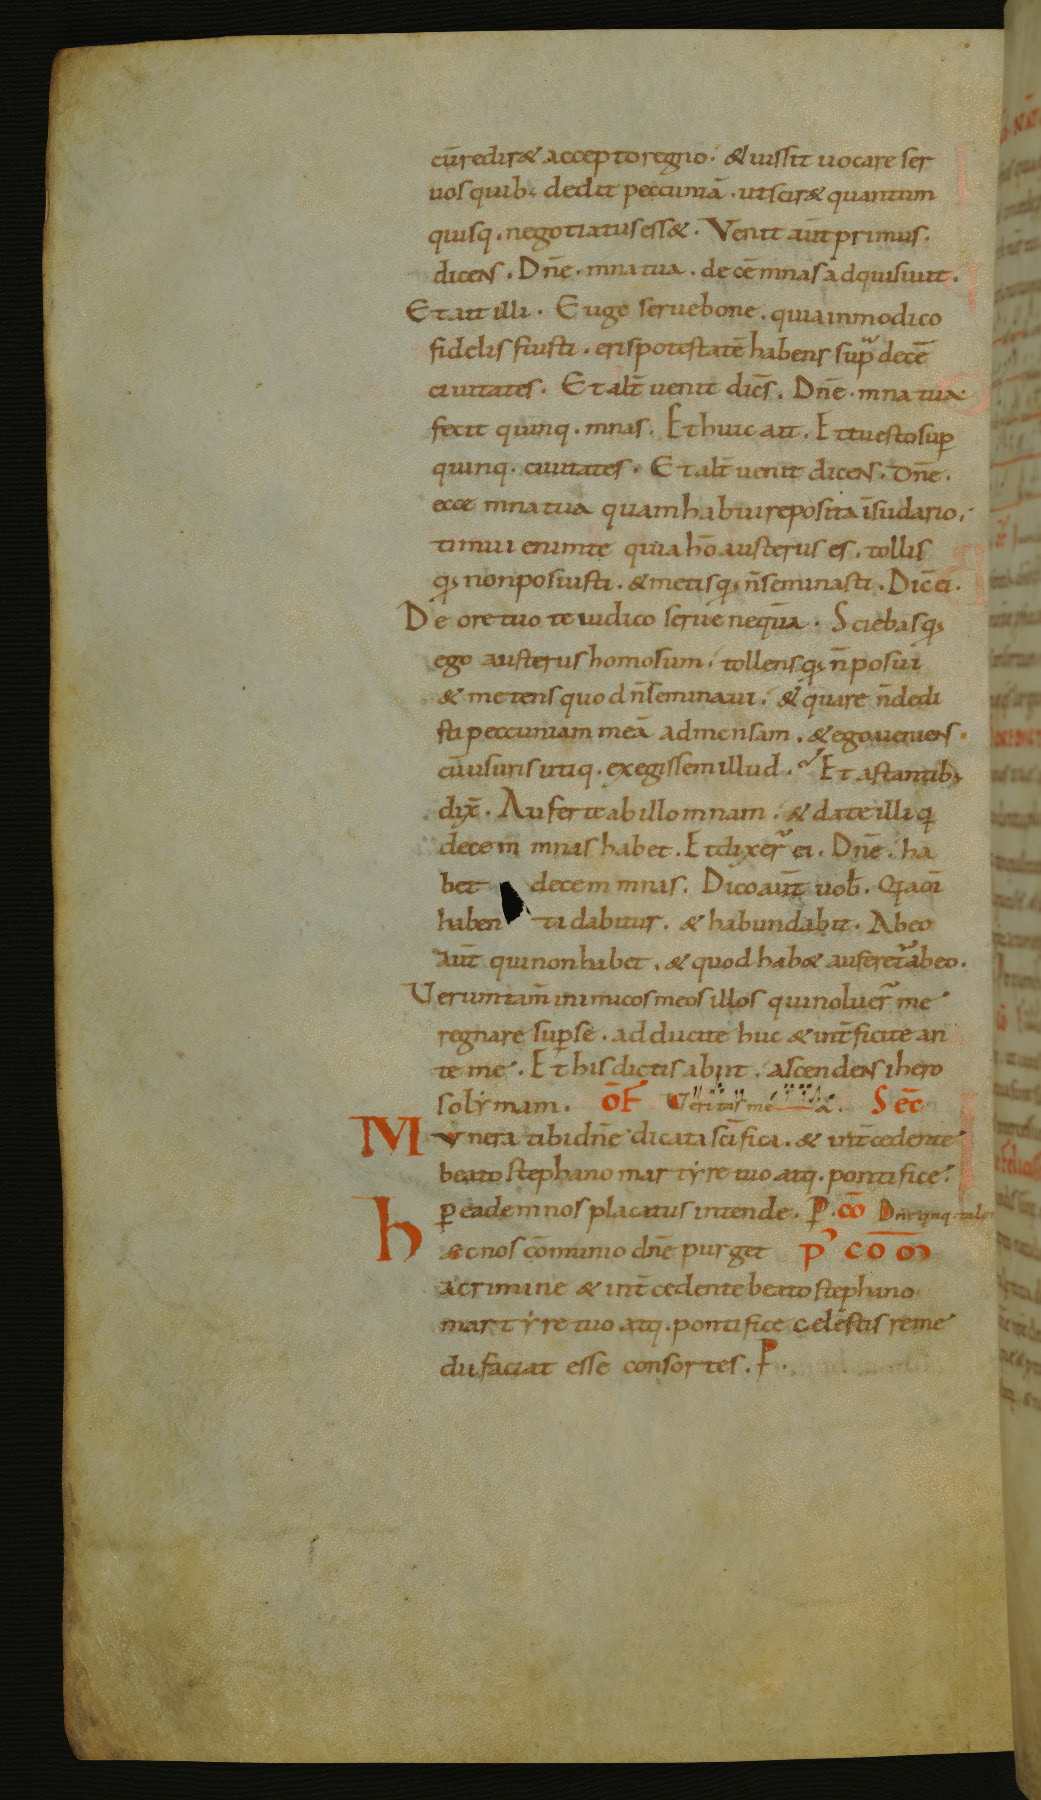 cū rediret accepto regno. & iussit uocare ser
uos quib; dedit peccuniā. ut sciret quantum
quisq. negotiatus esset. Venit aūt primus.
dicens. Dn̄e. mna tua. decē mnas adquisiuit.
Et ait illi. Euge serue bone. quia in modico
fidelis fuisti. eris potestatē habens sup̄ decē
ciuitates. Et alt̄ uenit dic̄s. Dn̄e. mna tua
fecit quinq. mnas. Et huic ait. Et tu esto sup̄
quinq. ciuitates. Et alt̄ uenit dicens. Dn̄e.
ecce mna tua quam habui repositā ī sudario.
timui enim te quia hō austerus es. tollis
q; non posuisti. & metis q; n̄ seminasti. Dic̄ ei.
De ore tuo te iudico serue nequā. Sciebas q;
ego austerus homo sum. tollens q; n̄ posui
& metens quod n̄ seminaui. & quare n̄ dedi
sti peccuniam meā ad mensam. & ego ueniens.
cū usuris utiq. exegissem illud. Et astantib;
dix̄. Auferte ab illo mnam. & date illi qi
decem mnas habet. Et dixer̄ ei. Dn̄e. ha
bet decem mnas. Dico aūt uob̄. Qia om̄i
habenti dabitur. & habundabit. Ab eo
aūt qui non habet. & quod habet auferet̄ ab eo.
Veruntam̄ inimicos meos illos qui noluer̄ me
regnare sup̄ se. adducite huc & int̄ficite an
te me. Et his dictis abiit. ascendens ihero
solẏmam. OF̄ Ueritas mea. Sec̄
Munera tibi dn̄e dicata sc̄ifica. & int̄cedente
beato stephano martẏre tuo atq. pontifice.
p̄ eadem nos placatus intende. P. cō Dn̄e qinq. tale
haec nos cōmunio dn̄e purget P̄ COM̄
a crimine & int̄cedente beato stephano
martẏre tuo atq. pontifice celestis reme
dii faciat esse consortes. P.